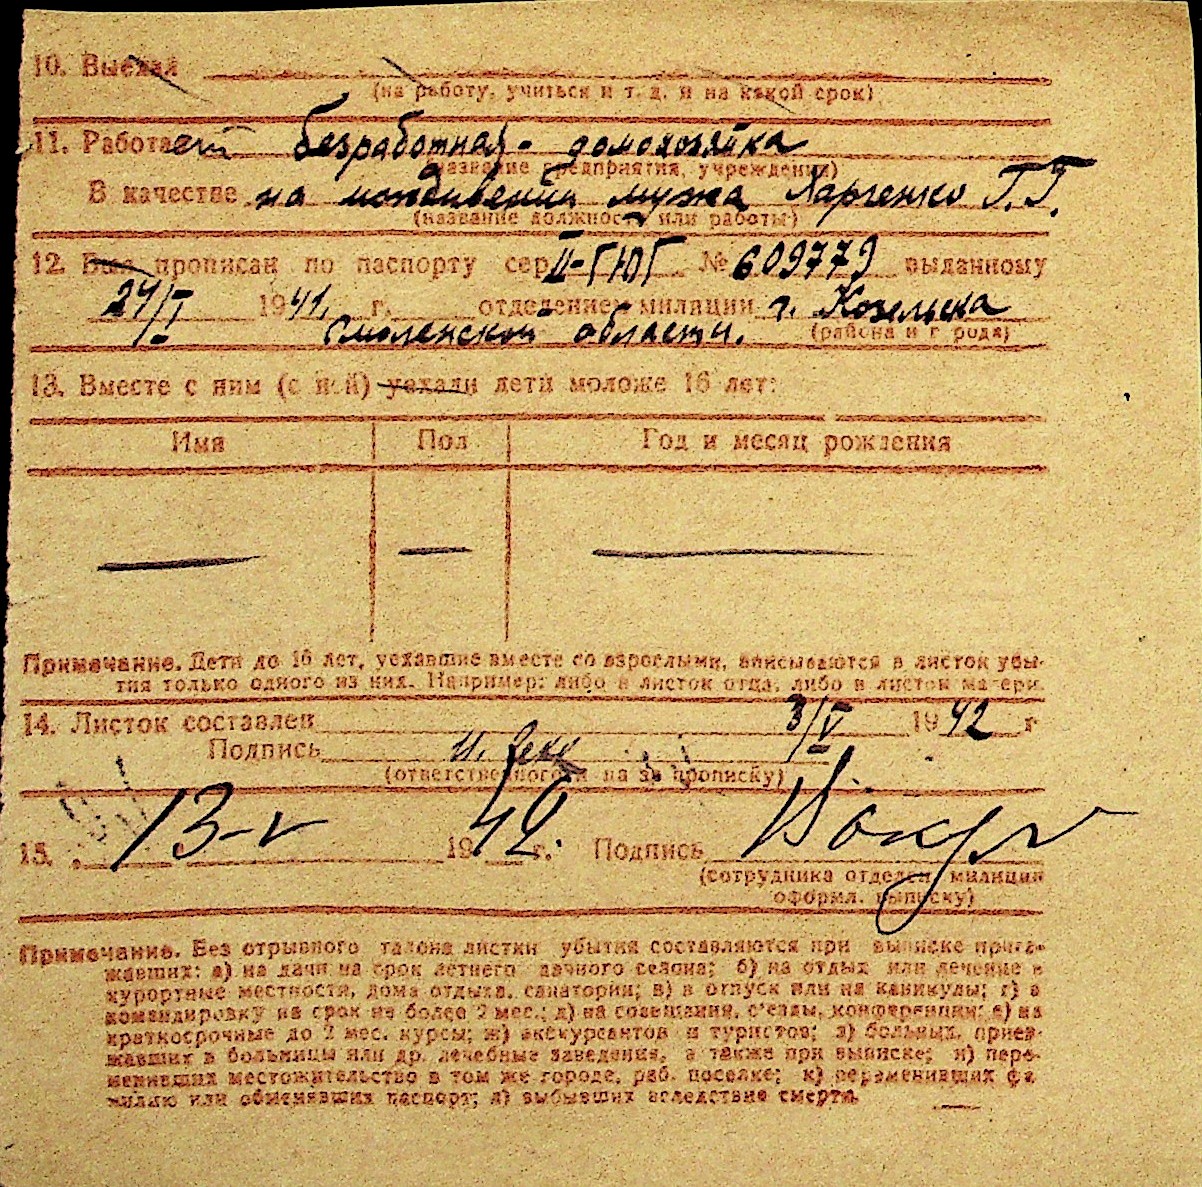 10. Выехал
(на работу, учиться и т. д. и на какой срок)
11. Работает безработная - домохозяйка
(название предприятия, учреждения)
В качестве на иждивении мужа Харченко Г.Г.
(название должности или работы)
12. Был прописан по паспорту сер. II-ГЮГ № 609779 выданному
24/I 1941. г. отделением милиции г. Козельска
Смоленской области. (района и города)
13. Вместе с ним (с ней) уехали дети моложе 16 лет:
Имя Пол Год и месяц рождения
— — —
Примечание. Дети до 16 лет, уехавшие вместе со взрослыми, вписываются в листок убы-
тия только одного из них. Например: либо в листок отца, либо в листок матери.
14. Листок составлен 3/V 1942 г
Подпись
(ответственного за прописку)
15. 13-V 1942. г. Подпись
(сотрудника отделен. милиции
оформл. выписку)
Примечание. Без отрывного талона листки убытия составляются при выписке приез-
жавших: а) на дачи на срок летнего дачного сезона; б) на отдых или лечение в
курортные местности, дома отдыха, санатории; в) в отпуск или на каникулы; г) в
командировку на срок не более 2 мес.; д) на совещания, с'езды, конференции; е) на
краткосрочные до 2 мес. курсы; ж) экскурсантов и туристов; з) больных, приез-
жавших в больницы или др. лечебные заведения, а также при выписке; и) пере-
менивших местожительство в том же городе, раб. поселке; к) переменивших фа-
милию или обменявших паспорт; л) выбывших вследствие смерти.